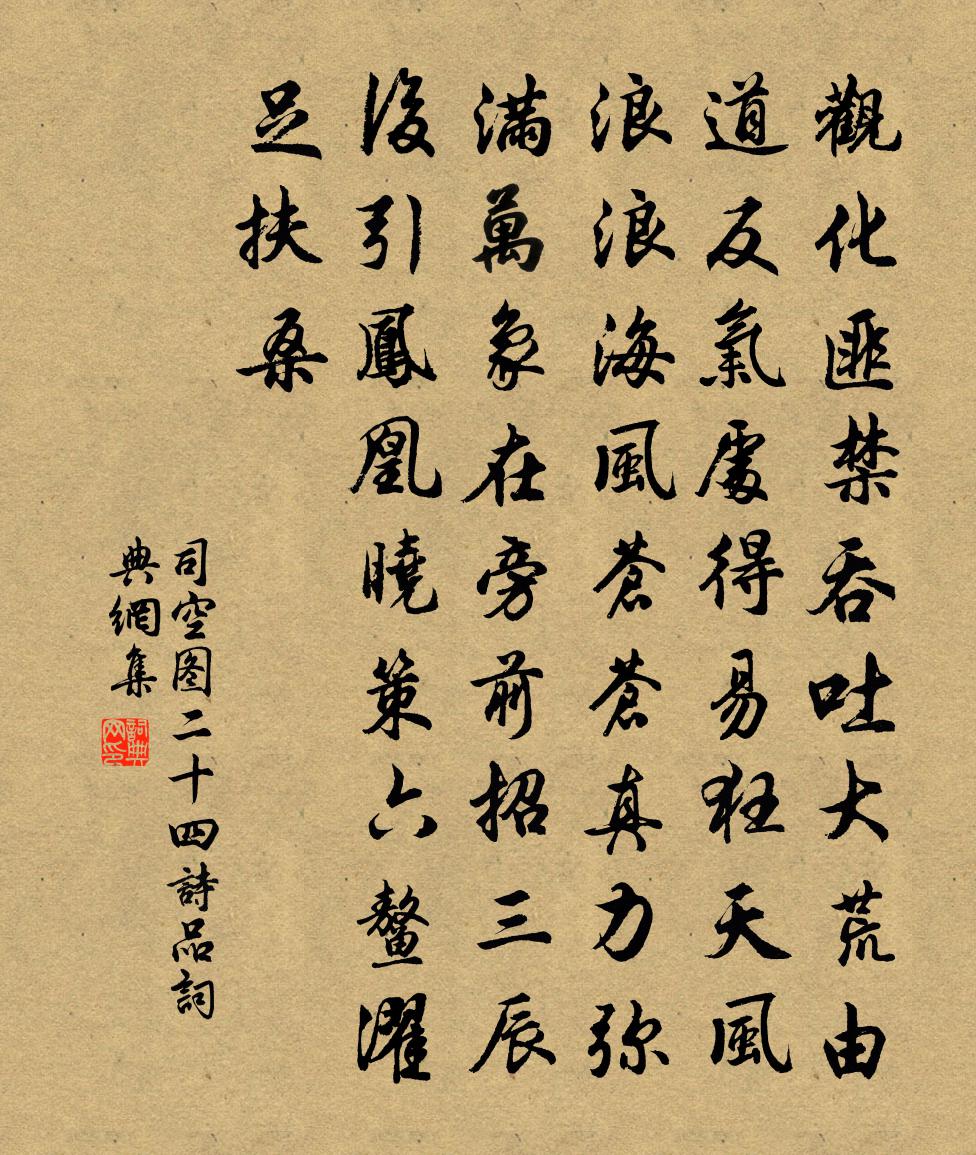 觀化匪禁吞吐大荒由
道反氣處得易狂天風
浪浪海風蒼蒼真力弥
滿萬象在旁前招三辰
後引鳳凰曉策六鳌濯
足扶桑
司空图二十四詩品詞
典網集
詞典
网印